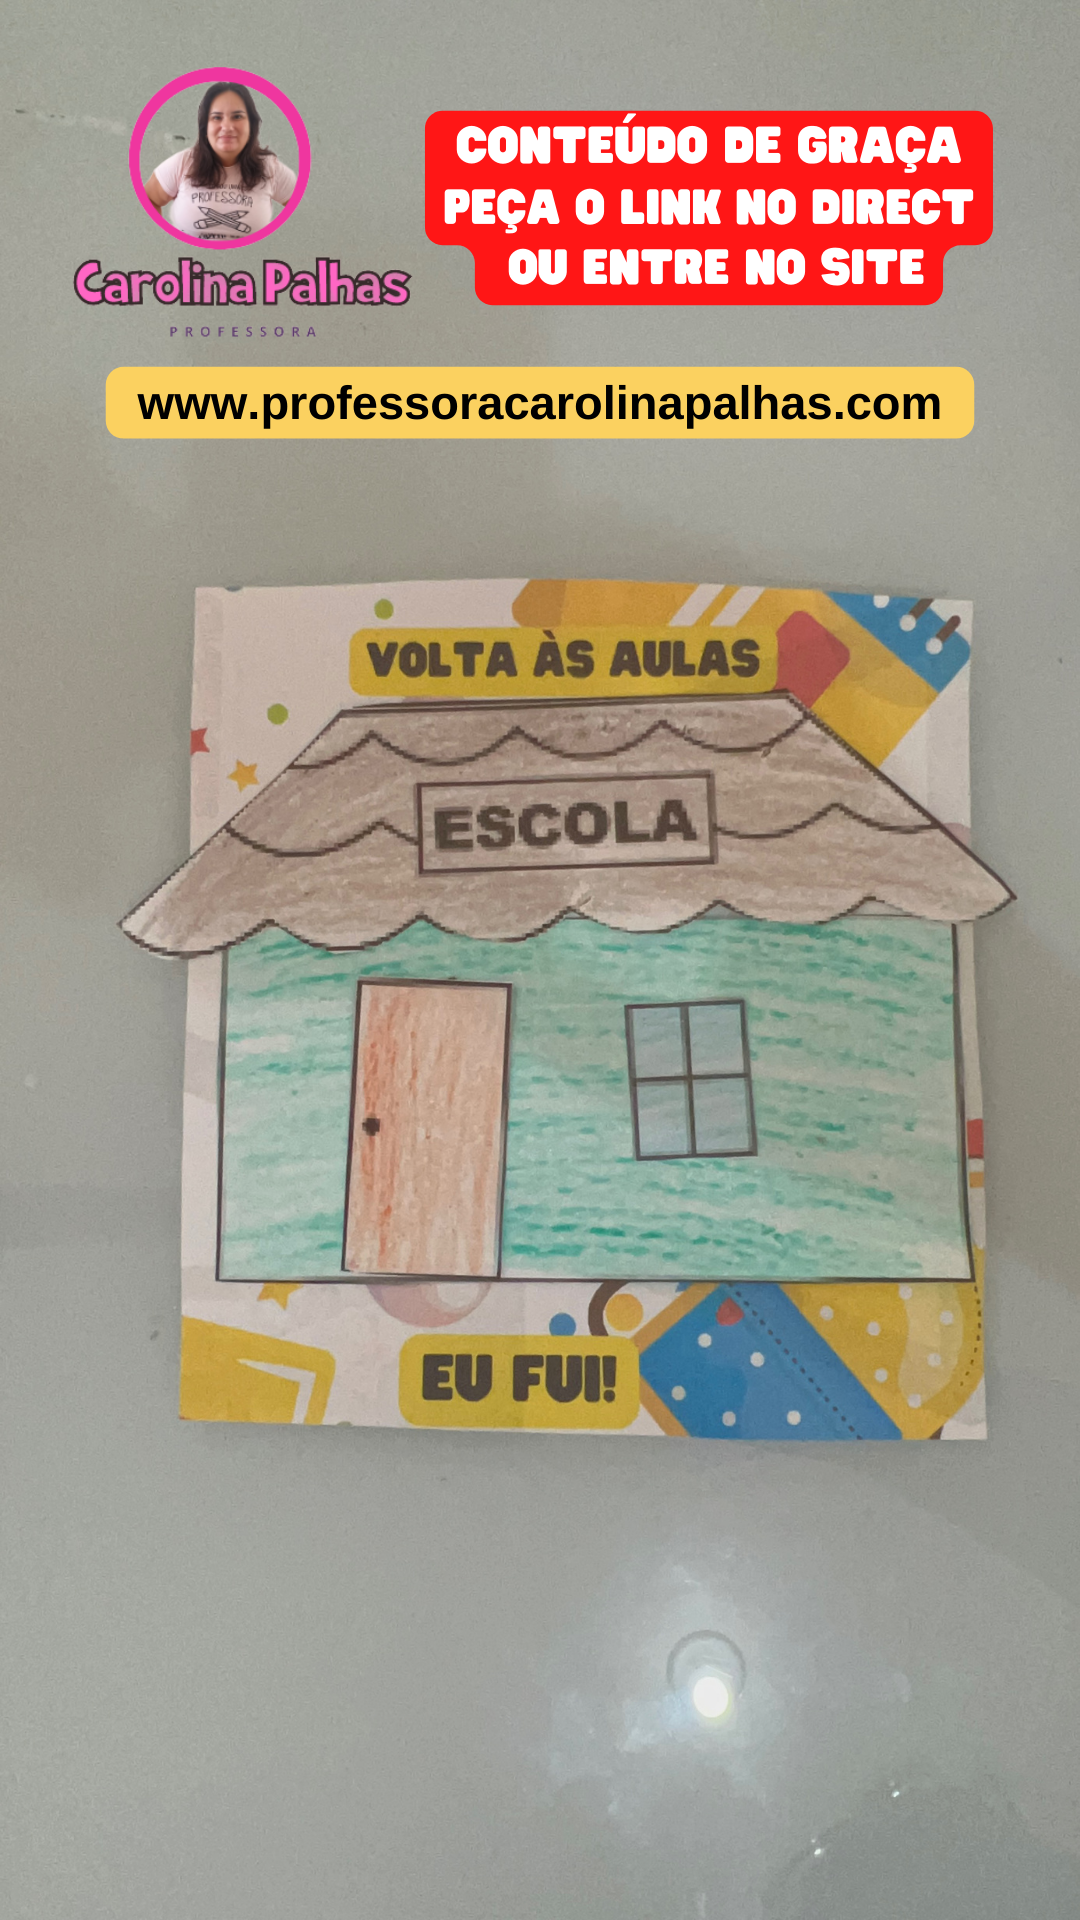 CONTEÚDO DE GRAÇA
PEÇA O LINK NO DIRECT
OU ENTRE NO SITE
PROFESSORA
Carolina Palhas
PROFESSORA
www.professoracarolinapalhas.com
VOLTA ÀS AULAS
ESCOLA
EU FUI!